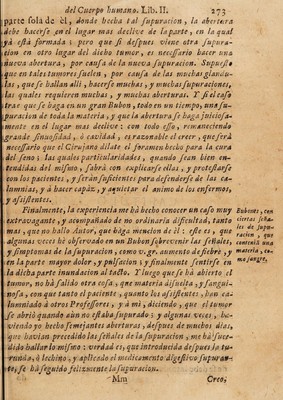 del Cuerpo humano. Lib. II. 273
parte sola de èl, donde hecha tal supuracion, la abertura
debe hacerse en el lugar mas declive de la parte, en la qual
yà està formada; pero que si despues viene otra supura-
cion en otro lugar del dicho tumor, es necessario hacer una
nueva abertura, por causa de la nueva supuracion. Supuesto
que en tales tumores suelen, por causa de las muchas glandu-
las, que se hallan alli, hacerse muchas, y muchas supuraciones,
las quales requieren muchas, y muchas aberturas. Y si el caso
trae que se haga en un gran Bubon, todo en un tiempo, una su-
puracion de toda la materia, y que la abertura se haga juiciosa-
mente en el lugar mas declive: con todo esso, remaneciendo
grande sinuosidad, ò cavidad, es razonable el creer, que serà
necessario que el Cirujano dilate el foramen hecho para la cura
del seno; las quales particularidades, quando sean bien en-
tendidas del mismo, sabrà con explicarse ellas, y protestarse
con los pacientes, y seràn suficientes para defenderse de las ca-
lumnias, y à hacer capàz, y aquietar el animo de los enfermos,
y assistentes.
Finalmente, la experiencia me hà hecho conocer un caso muy
extravagante, y acompañado de no ordinaria dificultad, tanto
mas, que no hallo Autor, que haga mencion de èl: este es, que
algunas veces hè observado en un Bubon sobrevenir las señales,
y symptomas de la supuracion, como v.gr. aumento de fiebre, y
en la parte mayor dolor, y pulsacion; y finalmente sentirse en
la dicha parte inundacion al tacto. Y luego que se hà abierto el
tumor, no hà salido otra cosa, que materia dissuelta, y sangui-
nosa, con que tanto el paciente, quanto los assistentes, han ca-
lumniado à otros Professores, y à mi, diciendo, que el tumor
se abriò quando aùn no estaba supurado; y algunas veces, ha-
viendo yo hecho semejantes aberturas, despues de muchos dias,
que havian precedido las señales de la supuracion, me hà suce-
dido hallar lo mismo: verdad es, que introducida despues la tu-
runda, ò lechino, y aplicado el medicamento digestivo supuran-
te, se hà seguido felizmente la supuracion.
Bubones, con
ciertas seña-
les de supu-
racion, que
contenia una
materia, co-
mo sangre.
Mm Creo,